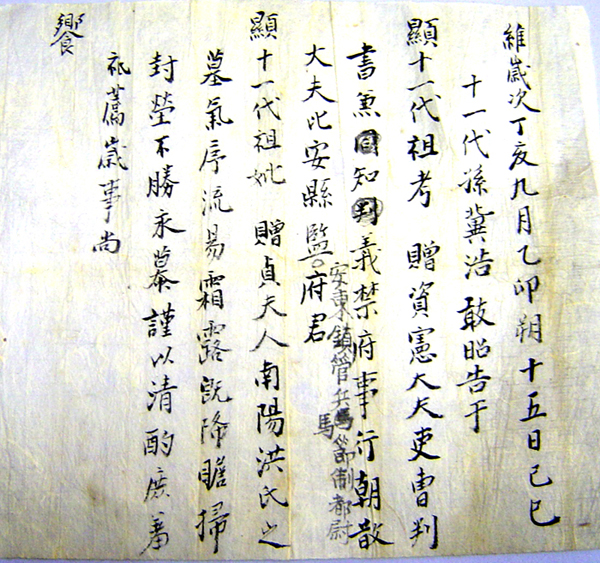 維歲次丁亥九月乙卯朔十五日己巳
十一代孫冀浩敢昭告于
顯十一代祖考 贈資憲大夫吏曹判
書兼同知義禁府事行朝散
大夫比安縣監府君
安東鎭管兵馬節制都尉
馬
顯十一代祖妣 贈貞夫人南陽洪氏之
墓氣序流易霜露旣降瞻掃
封塋不勝永慕謹以淸酌庶羞
祗薦歲事尚
饗